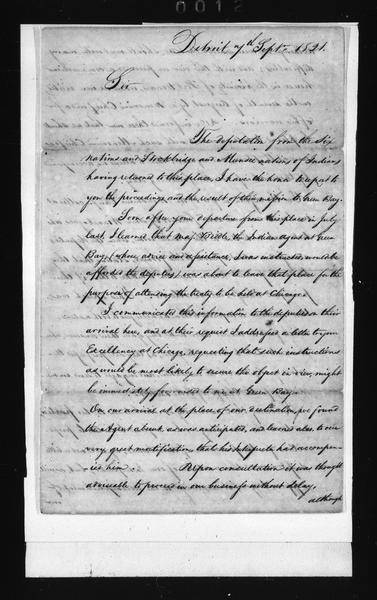 0012
Detroit 7th Septr. 1821.
Sir
The deputation from the Six
nations and Stockbridge and Munsee nations of Indians
having returned to this place, I have the honor to report to
you the proceedings and the result of their mission to Green Bay.
Soon after your departure from this place in July
last, I learned that Maj. Biddle, the Indian agent at Green
Bay, (whose advice and assistance, I was instructed, would be
afforded the deputies,) was about to leave that place for the
purpose of attending the treaty to be held at Chicago.
I communicated this information to the deputies on their
arrival here, and at their request I addressed a letter to your
Excellency at Chicago, requesting that such instructions
as would be most likely to secure the object in view, might
be immediately forwarded to me at Green Bay.
On our arrival at the place of our destination, we found
the Agent absent, as was anticipated, and learned also, to our
very great mortification that his Interpreter had accompan-
ied him. Upon consultation it was thought
adviseable to proceed in our business without delay,
although